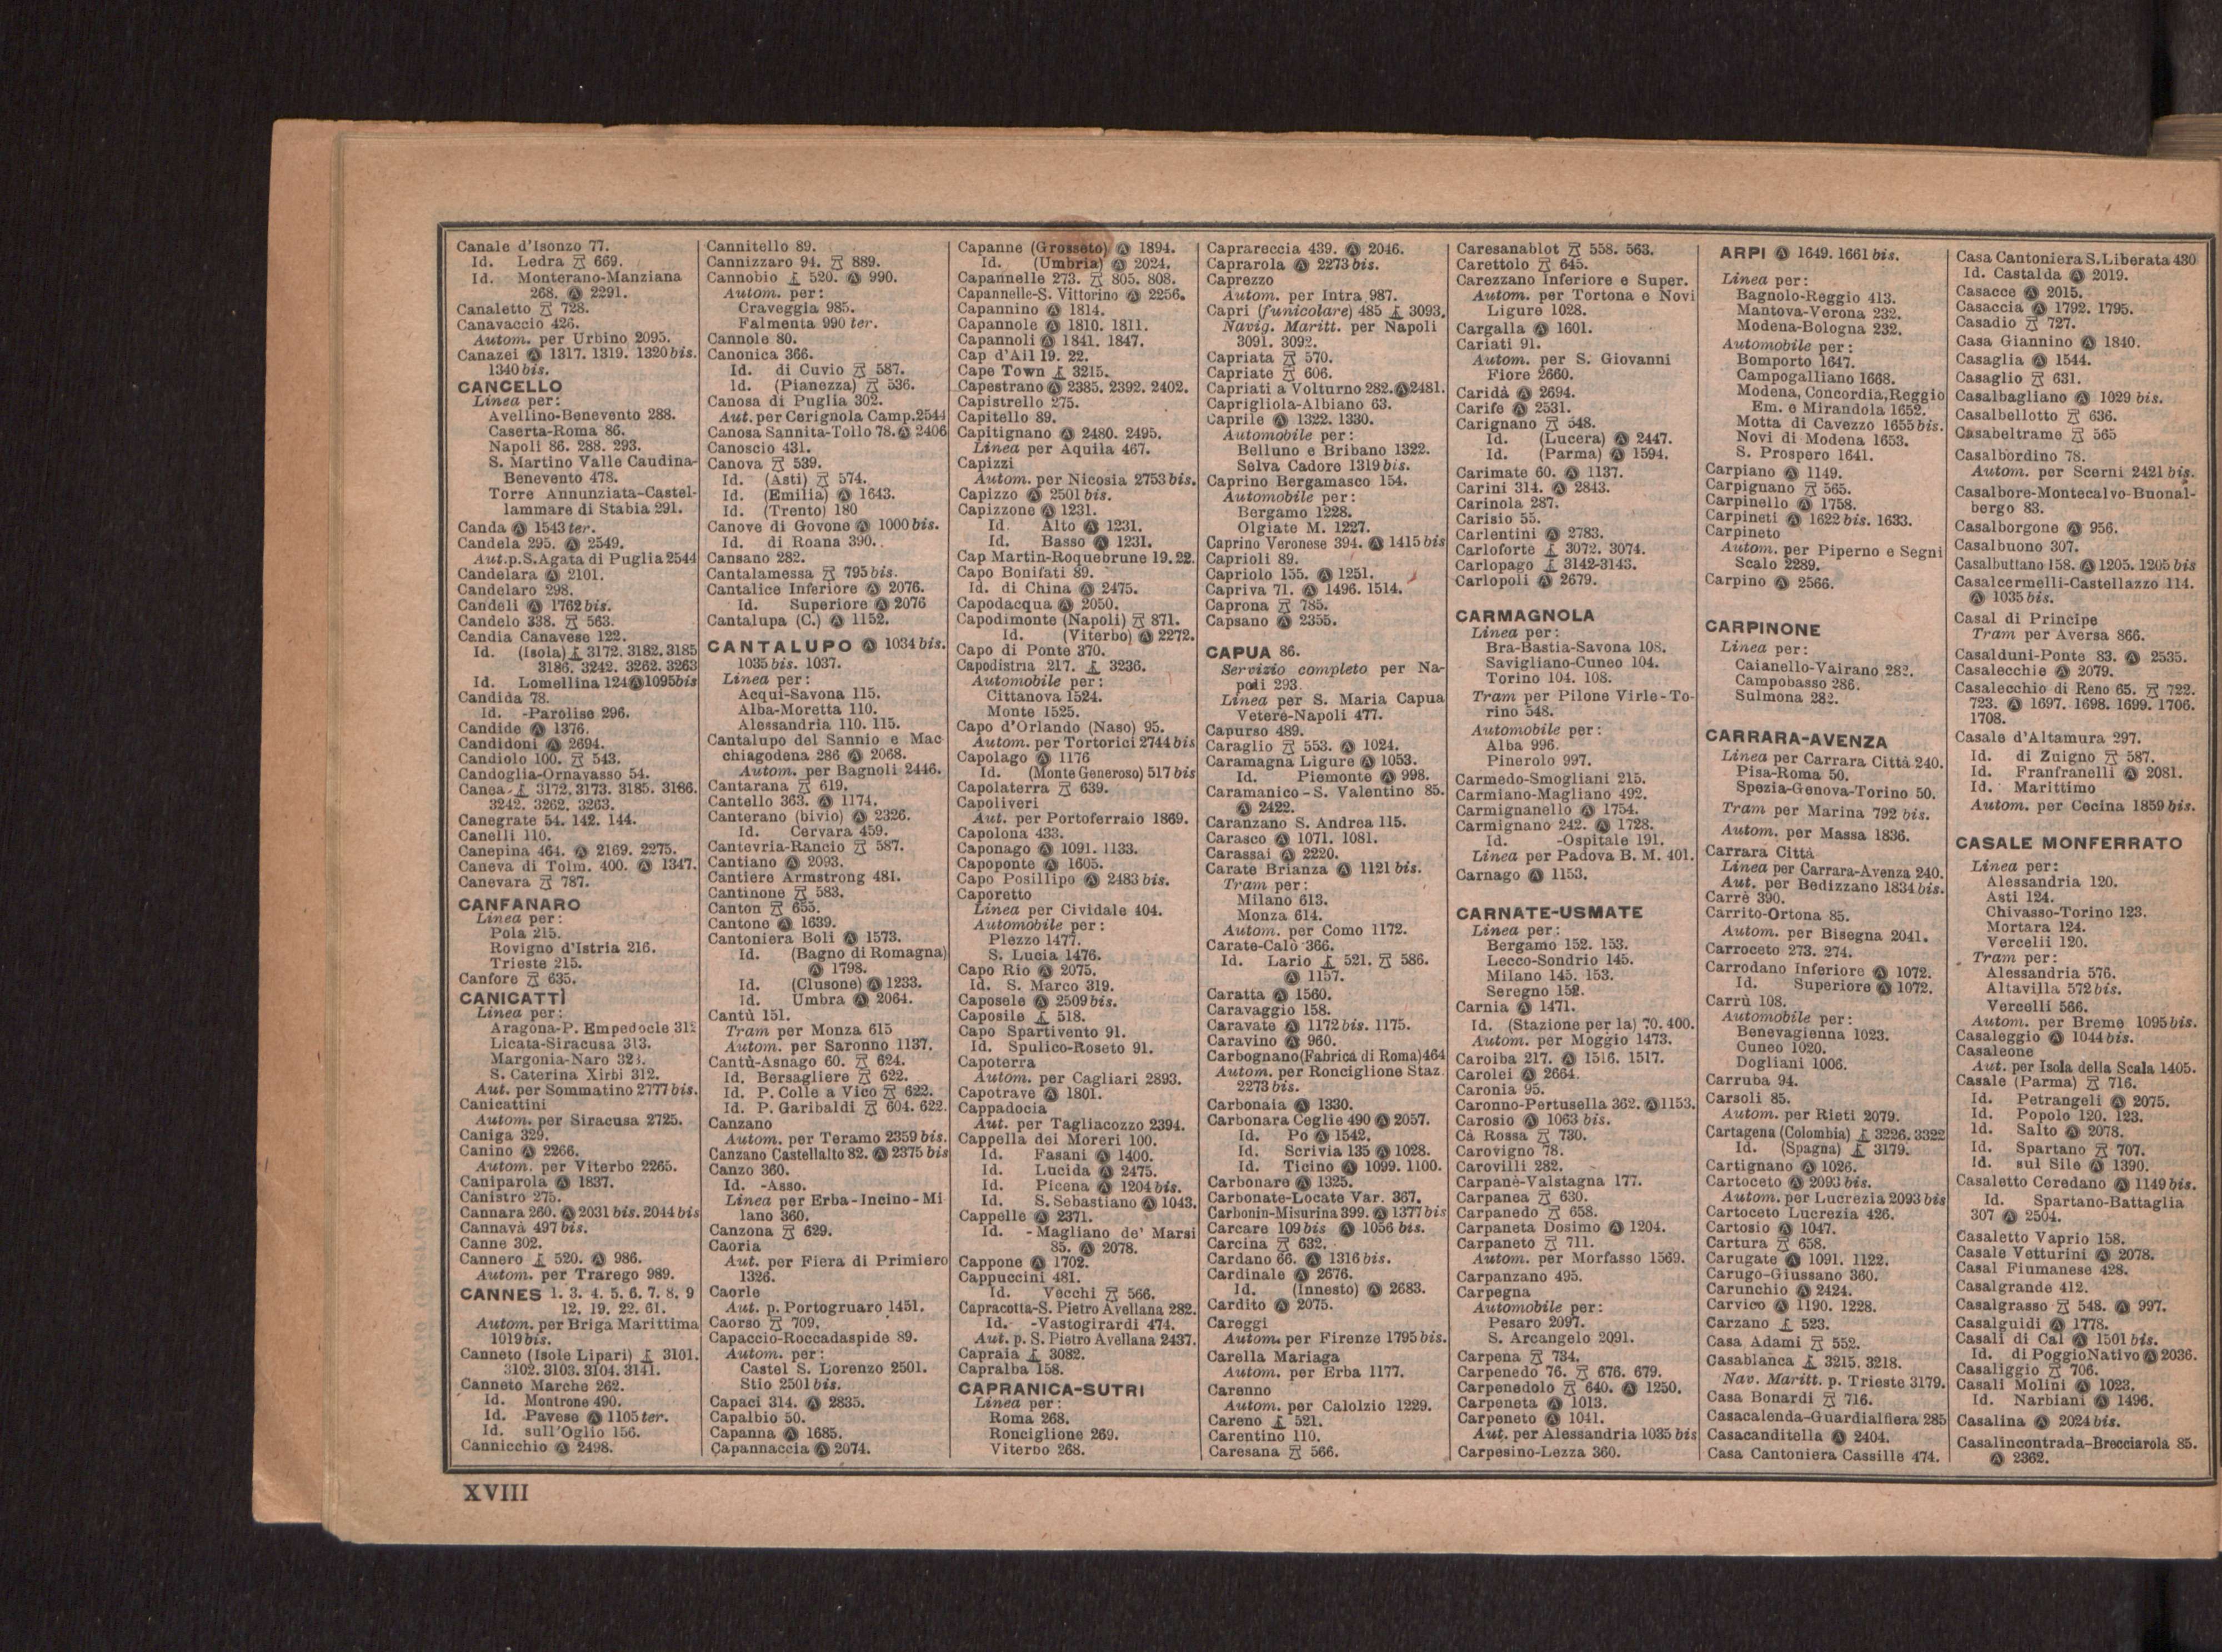 Canale d'Isonzo 77.
Id. Ledra 669.
Id. Monterano-Manziana
268. Ⓐ 2291.
Canaletto 728.
Canavaccio 426.
Autom. per Urbino 2095.
Canazei Ⓐ 1317. 1319. 1320 bis.
1340 bis.
CANCELLO
Linea per:
Avellino-Benevento 288.
Caserta-Roma 86.
Napoli 86. 288. 293.
S. Martino Valle Caudina-
Benevento 478.
Torre Annunziata-Castel-
lammare di Stabia 291.
Canda Ⓐ 1543 ter.
Candela 295. Ⓐ 2549.
Aut.p.S.Agata di Puglia 2544
Candelara Ⓐ 2101.
Candelaro 298.
Candeli Ⓐ 1762 bis.
Candelo 338. 563.
Candia Canavese 122.
Id. (Isola) 3172. 3182. 3185
3186. 3242. 3262. 3263
Id. Lomellina 124 Ⓐ 1095 bis
Candida 78.
Id. -Parolise 296.
Candide Ⓐ 1376.
Candidoni Ⓐ 2694.
Candiolo 100. 543.
Candoglia-Ornavasso 54.
Canea 3172. 3173. 3185. 3186.
3242. 3262. 3263.
Canegrate 54. 142. 144.
Canelli 110.
Canepina 464. Ⓐ 2169. 2275.
Caneva di Tolm. 400. Ⓐ 1347.
Canevara 787.
CANFANARO
Linea per:
Pola 215.
Rovigno d'Istria 216.
Trieste 215.
Canfore 635.
CANICATTÌ
Linea per:
Aragona-P. Empedocle 312
Licata-Siracusa 313.
Margonia-Naro 323.
S. Caterina Xirbi 312.
Aut. per Sommatino 2777 bis.
Canicattini
Autom. per Siracusa 2725.
Caniga 329.
Canino Ⓐ 2266.
Autom. per Viterbo 2265.
Caniparola Ⓐ 1837.
Canistro 275.
Cannara 260. Ⓐ 2031 bis. 2044 bis
Cannavà 497 bis.
Canne 302.
Cannero 520. Ⓐ 986.
Autom. per Trarego 989.
CANNES 1. 3. 4. 5. 6. 7. 8. 9
12. 19. 22. 61.
Autom. per Briga Marittima
1019 bis.
Canneto (Isole Lipari) 3101.
3102. 3103. 3104. 3141.
Canneto Marche 262.
Id. Montrone 490.
Id. Pavese Ⓐ 1105 ter.
Id. sull'Oglio 156.
Cannicchio Ⓐ 2498.
Cannitello 89.
Cannizzaro 94. 889.
Cannobio 520. Ⓐ 990.
Autom. per:
Craveggia 985.
Falmenta 990 ter.
Cannole 80.
Canonica 366.
Id. di Cuvio 587.
Id. (Pianezza) 536.
Canosa di Puglia 302.
Aut. per Cerignola Camp.2544
Canosa Sannita-Tollo 78. Ⓐ 2406
Canoscio 431.
Canova 539.
Id. (Asti) 574.
Id. (Emilia) Ⓐ 1643.
Id. (Trento) 180
Canove di Govone Ⓐ 1000 bis.
Id. di Roana 390.
Cansano 282.
Cantalamessa 795 bis.
Cantalice Inferiore Ⓐ 2076.
Id. Superiore Ⓐ 2076
Cantalupa (C.) Ⓐ 1152.
CANTALUPO Ⓐ 1034 bis.
1035 bis. 1037.
Linea per:
Acqui-Savona 115.
Alba-Moretta 110.
Alessandria 110. 115.
Cantalupo del Sannio e Mac
chiagodena 286 Ⓐ 2068.
Autom. per Bagnoli 2446.
Cantarana 619.
Cantello 363. Ⓐ 1174.
Canterano (bivio) Ⓐ 2326.
Id. Cervara 459.
Cantevria-Rancio 587.
Cantiano Ⓐ 2093.
Cantiere Armstrong 481.
Cantinone 583.
Canton 655.
Cantone Ⓐ 1639.
Cantoniera Boli Ⓐ 1573.
Id. (Bagno di Romagna)
Ⓐ 1798.
Id. (Clusone) Ⓐ 1233.
Id. Umbra Ⓐ 2064.
Cantù 151.
Tram per Monza 615
Autom. per Saronno 1137.
Cantù-Asnago 60. 624.
Id. Bersagliere 622.
Id. P. Colle a Vico 622.
Id. P. Garibaldi 604. 622.
Canzano
Autom. per Teramo 2359 bis.
Canzano Castellalto 82. Ⓐ 2375 bis
Canzo 360.
Id. -Asso.
Linea per Erba-Incino-Mi
lano 360.
Canzona 629.
Caoria
Aut. per Fiera di Primiero
1326.
Caorle
Aut. p. Portogruaro 1451.
Caorso 709.
Capaccio-Roccadaspide 89.
Autom. per:
Castel S. Lorenzo 2501.
Stio 2501 bis.
Capaci 314. Ⓐ 2835.
Capalbio 50.
Capanna Ⓐ 1685.
Capannaccia Ⓐ 2074.
Capanne (Grosseto) Ⓐ 1894.
Id. (Umbria) Ⓐ 2024.
Capannelle 273. 805. 808.
Capannelle-S. Vittorino Ⓐ 2256.
Capannino Ⓐ 1814.
Capannole Ⓐ 1810. 1811.
Capannoli Ⓐ 1841. 1847.
Cap d'Ail 19. 22.
Cape Town 3215.
Capestrano Ⓐ 2385. 2392. 2402.
Capistrello 275.
Capitello 89.
Capitignano Ⓐ 2480. 2495.
Linea per Aquila 467.
Capizzi
Autom. per Nicosia 2753 bis.
Capizzo Ⓐ 2501 bis.
Capizzone Ⓐ 1231.
Id. Alto Ⓐ 1231.
Id. Basso Ⓐ 1231.
Cap Martin-Roquebrune 19. 22.
Capo Bonifati 89.
Id. di China Ⓐ 2475.
Capodacqua Ⓐ 2050.
Capodimonte (Napoli) 871.
Id. (Viterbo) Ⓐ 2272.
Capo di Ponte 370.
Capodistria 217. 3236.
Automobile per:
Cittanova 1524.
Monte 1525.
Capo d'Orlando (Naso) 95.
Autom. per Tortorici 2744 bis
Capolago Ⓐ 1176
Id. (Monte Generoso) 517 bis
Capolaterra 639.
Capoliveri
Aut. per Portoferraio 1869.
Capolona 433.
Caponago Ⓐ 1091. 1133.
Capoponte Ⓐ 1605.
Capo Posillipo Ⓐ 2483 bis.
Caporetto
Linea per Cividale 404.
Automobile per:
Plezzo 1477.
S. Lucia 1476.
Capo Rio Ⓐ 2075.
Id. S. Marco 319.
Caposele Ⓐ 2509 bis.
Caposile 518.
Capo Spartivento 91.
Id. Spulico-Roseto 91.
Capoterra
Autom. per Cagliari 2893.
Capotrave Ⓐ 1801.
Cappadocia
Aut. per Tagliacozzo 2394.
Cappella dei Moreri 100.
Id. Fasani Ⓐ 1400.
Id. Lucida Ⓐ 2475.
Id. Picena Ⓐ 1204 bis.
Id. S. Sebastiano Ⓐ 1043.
Cappelle Ⓐ 2371.
Id. -Magliano de' Marsi
85. Ⓐ 2078.
Cappone Ⓐ 1702.
Cappuccini 481.
Id. Vecchi 566.
Capracotta-S. Pietro Avellana 282.
Id. -Vastogirardi 474.
Aut. p. S. Pietro Avellana 2437.
Capraia 3082.
Capralba 158.
CAPRANICA-SUTRI
Linea per:
Roma 268.
Ronciglione 269.
Viterbo 268.
Caprareccia 439. Ⓐ 2046.
Caprarola Ⓐ 2273 bis.
Caprezzo
Autom. per Intra 987.
Capri (funicolare) 485 3093.
Navig. Maritt. per Napoli
3091. 3092.
Capriata 570.
Capriate 606.
Capriati a Volturno 282. Ⓐ 2481.
Caprigliola-Albiano 63.
Caprile Ⓐ 1322. 1330.
Automobile per:
Belluno e Bribano 1322.
Selva Cadore 1319 bis.
Caprino Bergamasco 154.
Automobile per:
Bergamo 1228.
Olgiate M. 1227.
Caprino Veronese 394. Ⓐ 1415 bis
Caprioli 89.
Capriolo 155. Ⓐ 1251.
Capriva 71. Ⓐ 1496. 1514.
Caprona 785.
Capsano Ⓐ 2355.
CAPUA 86.
Servizio completo per Na-
poli 293.
Linea per S. Maria Capua
Vetere-Napoli 477.
Capurso 489.
Caraglio 553. Ⓐ 1024.
Caramagna Ligure Ⓐ 1053.
Id. Piemonte Ⓐ 998.
Caramanico-S. Valentino 85.
Ⓐ 2422.
Caranzano S. Andrea 115.
Carasco Ⓐ 1071. 1081.
Carassai Ⓐ 2220.
Carate Brianza Ⓐ 1121 bis.
Tram per:
Milano 613.
Monza 614.
Autom. per Como 1172.
Carate-Calò 366.
Id. Lario 521. 586.
Ⓐ 1157.
Caratta Ⓐ 1560.
Caravaggio 158.
Caravate Ⓐ 1172 bis. 1175.
Caravino Ⓐ 960.
Carbognano(Fabrica di Roma)464
Autom. per Ronciglione Staz.
2273 bis.
Carbonaia Ⓐ 1330.
Carbonara Ceglie 490 Ⓐ 2057.
Id. Po Ⓐ 1542.
Id. Scrivia 135 Ⓐ 1028.
Id. Ticino Ⓐ 1099. 1100.
Carbonare Ⓐ 1325.
Carbonate-Locate Var. 367.
Carbonin-Misurina 399. Ⓐ 1377 bis
Carcare 109 bis Ⓐ 1056 bis.
Carcina 632.
Cardano 66. Ⓐ 1316 bis.
Cardinale Ⓐ 2676.
Id. (Innesto) Ⓐ 2683.
Cardito Ⓐ 2075.
Careggi
Autom. per Firenze 1795 bis.
Carella Mariaga
Autom. per Erba 1177.
Carenno
Autom. per Calolzio 1229.
Careno 521.
Carentino 110.
Caresana 566.
Caresanablot 558. 563.
Carettolo 645.
Carezzano Inferiore e Super.
Autom. per Tortona e Novi
Ligure 1028.
Cargalla Ⓐ 1601.
Cariati 91.
Autom. per S. Giovanni
Fiore 2660.
Caridà Ⓐ 2694.
Carife Ⓐ 2531.
Carignano 548.
Id. (Lucera) Ⓐ 2447.
Id. (Parma) Ⓐ 1594.
Carimate 60. Ⓐ 1137.
Carini 314. Ⓐ 2843.
Carinola 287.
Carisio 55.
Carlentini Ⓐ 2783.
Carloforte 3072. 3074.
Carlopago 3142-3143.
Carlopoli Ⓐ 2679.
CARMAGNOLA
Linea per:
Bra-Bastia-Savona 108.
Savigliano-Cuneo 104.
Torino 104. 108.
Tram per Pilone Virle-To-
rino 548.
Automobile per:
Alba 996.
Pinerolo 997.
Carmedo-Smogliani 215.
Carmiano-Magliano 492.
Carmignanello Ⓐ 1754.
Carmignano 242. Ⓐ 1728.
Id. -Ospitale 191.
Linea per Padova B. M. 401.
Carnago Ⓐ 1153.
CARNATE-USMATE
Linea per:
Bergamo 152. 153.
Lecco-Sondrio 145.
Milano 145. 153.
Seregno 152.
Carnia Ⓐ 1471.
Id. (Stazione per la) 70. 400.
Autom. per Moggio 1473.
Caroiba 217. Ⓐ 1516. 1517.
Carolei Ⓐ 2664.
Caronia 95.
Caronno-Pertusella 362. Ⓐ 1153.
Carosio Ⓐ 1063 bis.
Cà Rossa 730.
Carovigno 78.
Carovilli 282.
Carpanè-Valstagna 177.
Carpanea 630.
Carpanedo 658.
Carpaneta Dosimo Ⓐ 1204.
Carpaneto 711.
Autom. per Morfasso 1569.
Carpanzano 495.
Carpegna
Automobile per:
Pesaro 2097.
S. Arcangelo 2091.
Carpena 734.
Carpenedo 76. 676. 679.
Carpenedolo 640. Ⓐ 1250.
Carpeneta Ⓐ 1013.
Carpeneto Ⓐ 1041.
Aut. per Alessandria 1035 bis
Carpesino-Lezza 360.
ARPI Ⓐ 1649. 1661 bis.
Linea per:
Bagnolo-Reggio 413.
Mantova-Verona 232.
Modena-Bologna 232.
Automobile per:
Bomporto 1647.
Campogalliano 1668.
Modena, Concordia, Reggio
Em. e Mirandola 1652.
Motta di Cavezzo 1655 bis.
Novi di Modena 1653.
S. Prospero 1641.
Carpiano Ⓐ 1149.
Carpignano 565.
Carpinello Ⓐ 1758.
Carpineti Ⓐ 1622 bis. 1633.
Carpineto
Autom. per Piperno e Segni
Scalo 2289.
Carpino Ⓐ 2566.
CARPINONE
Linea per:
Caianello-Vairano 282.
Campobasso 286.
Sulmona 282.
CARRARA-AVENZA
Linea per Carrara Città 240.
Pisa-Roma 50.
Spezia-Genova-Torino 50.
Tram per Marina 792 bis.
Autom. per Massa 1836.
Carrara Città
Linea per Carrara-Avenza 240.
Aut. per Bedizzano 1834 bis.
Carrè 390.
Carrito-Ortona 85.
Autom. per Bisegna 2041.
Carroceto 273. 274.
Carrodano Inferiore Ⓐ 1072.
Id. Superiore Ⓐ 1072.
Carrù 108.
Automobile per:
Benevagienna 1023.
Cuneo 1020.
Dogliani 1006.
Carruba 94.
Carsoli 85.
Autom. per Rieti 2079.
Cartagena (Colombia) 3226. 3322
Id. (Spagna) 3179.
Cartignano Ⓐ 1026.
Cartoceto Ⓐ 2093 bis.
Autom. per Lucrezia 2093 bis
Cartoceto Lucrezia 426.
Cartosio Ⓐ 1047.
Cartura 658.
Carugate Ⓐ 1091. 1122.
Carugo-Giussano 360.
Carunchio Ⓐ 2424.
Carvico Ⓐ 1190. 1228.
Carzano 523.
Casa Adami 552.
Casablanca 3215. 3218.
Nav. Maritt. p. Trieste 3179.
Casa Bonardi 716.
Casacalenda-Guardialfiera 285
Casacanditella Ⓐ 2404.
Casa Cantoniera Cassille 474.
Casa Cantoniera S.Liberata 430
Id. Castalda Ⓐ 2019.
Casacce Ⓐ 2015.
Casaccia Ⓐ 1792. 1795.
Casadio 727.
Casa Giannino Ⓐ 1840.
Casaglia Ⓐ 1544.
Casaglio 631.
Casalbagliano Ⓐ 1029 bis.
Casalbellotto 636.
Casabeltrame 565
Casalbordino 78.
Autom. per Scerni 2421 bis.
Casalbore-Montecalvo-Buonal-
bergo 83.
Casalborgone Ⓐ 956.
Casalbuono 307.
Casalbuttano 158. Ⓐ 1205. 1205 bis
Casalcermelli-Castellazzo 114.
Ⓐ 1035 bis.
Casal di Principe
Tram per Aversa 866.
Casalduni-Ponte 83. Ⓐ 2535.
Casalecchie Ⓐ 2079.
Casalecchio di Reno 65. 722.
723. Ⓐ 1697. 1698. 1699. 1706.
1708.
Casale d'Altamura 297.
Id. di Zuigno 587.
Id. Franfranelli Ⓐ 2081.
Id. Marittimo
Autom. per Cecina 1859 bis.
CASALE MONFERRATO
Linea per:
Alessandria 120.
Asti 124.
Chivasso-Torino 123.
Mortara 124.
Vercelii 120.
Tram per:
Alessandria 576.
Altavilla 572 bis.
Vercelli 566.
Autom. per Breme 1095 bis.
Casaleggio Ⓐ 1044 bis.
Casaleone
Aut. per Isola della Scala 1405.
Casale (Parma) 716.
Id. Petrangeli Ⓐ 2075.
Id. Popolo 120. 123.
Id. Salto Ⓐ 2078.
Id. Spartano 707.
Id. sul Sile Ⓐ 1390.
Casaletto Ceredano Ⓐ 1149 bis.
Id. Spartano-Battaglia
307 Ⓐ 2504.
Casaletto Vaprio 158.
Casale Vetturini Ⓐ 2078.
Casal Fiumanese 428.
Casalgrande 412.
Casalgrasso 548. Ⓐ 997.
Casalguidi Ⓐ 1778.
Casali di Cal Ⓐ 1501 bis.
Id. di Poggio Nativo Ⓐ 2036.
Casaliggio 706.
Casali Molini Ⓐ 1023.
Id. Narbiani Ⓐ 1496.
Casalina Ⓐ 2024 bis.
Casalincontrada-Brecciarola 85.
Ⓐ 2362.
XVIII